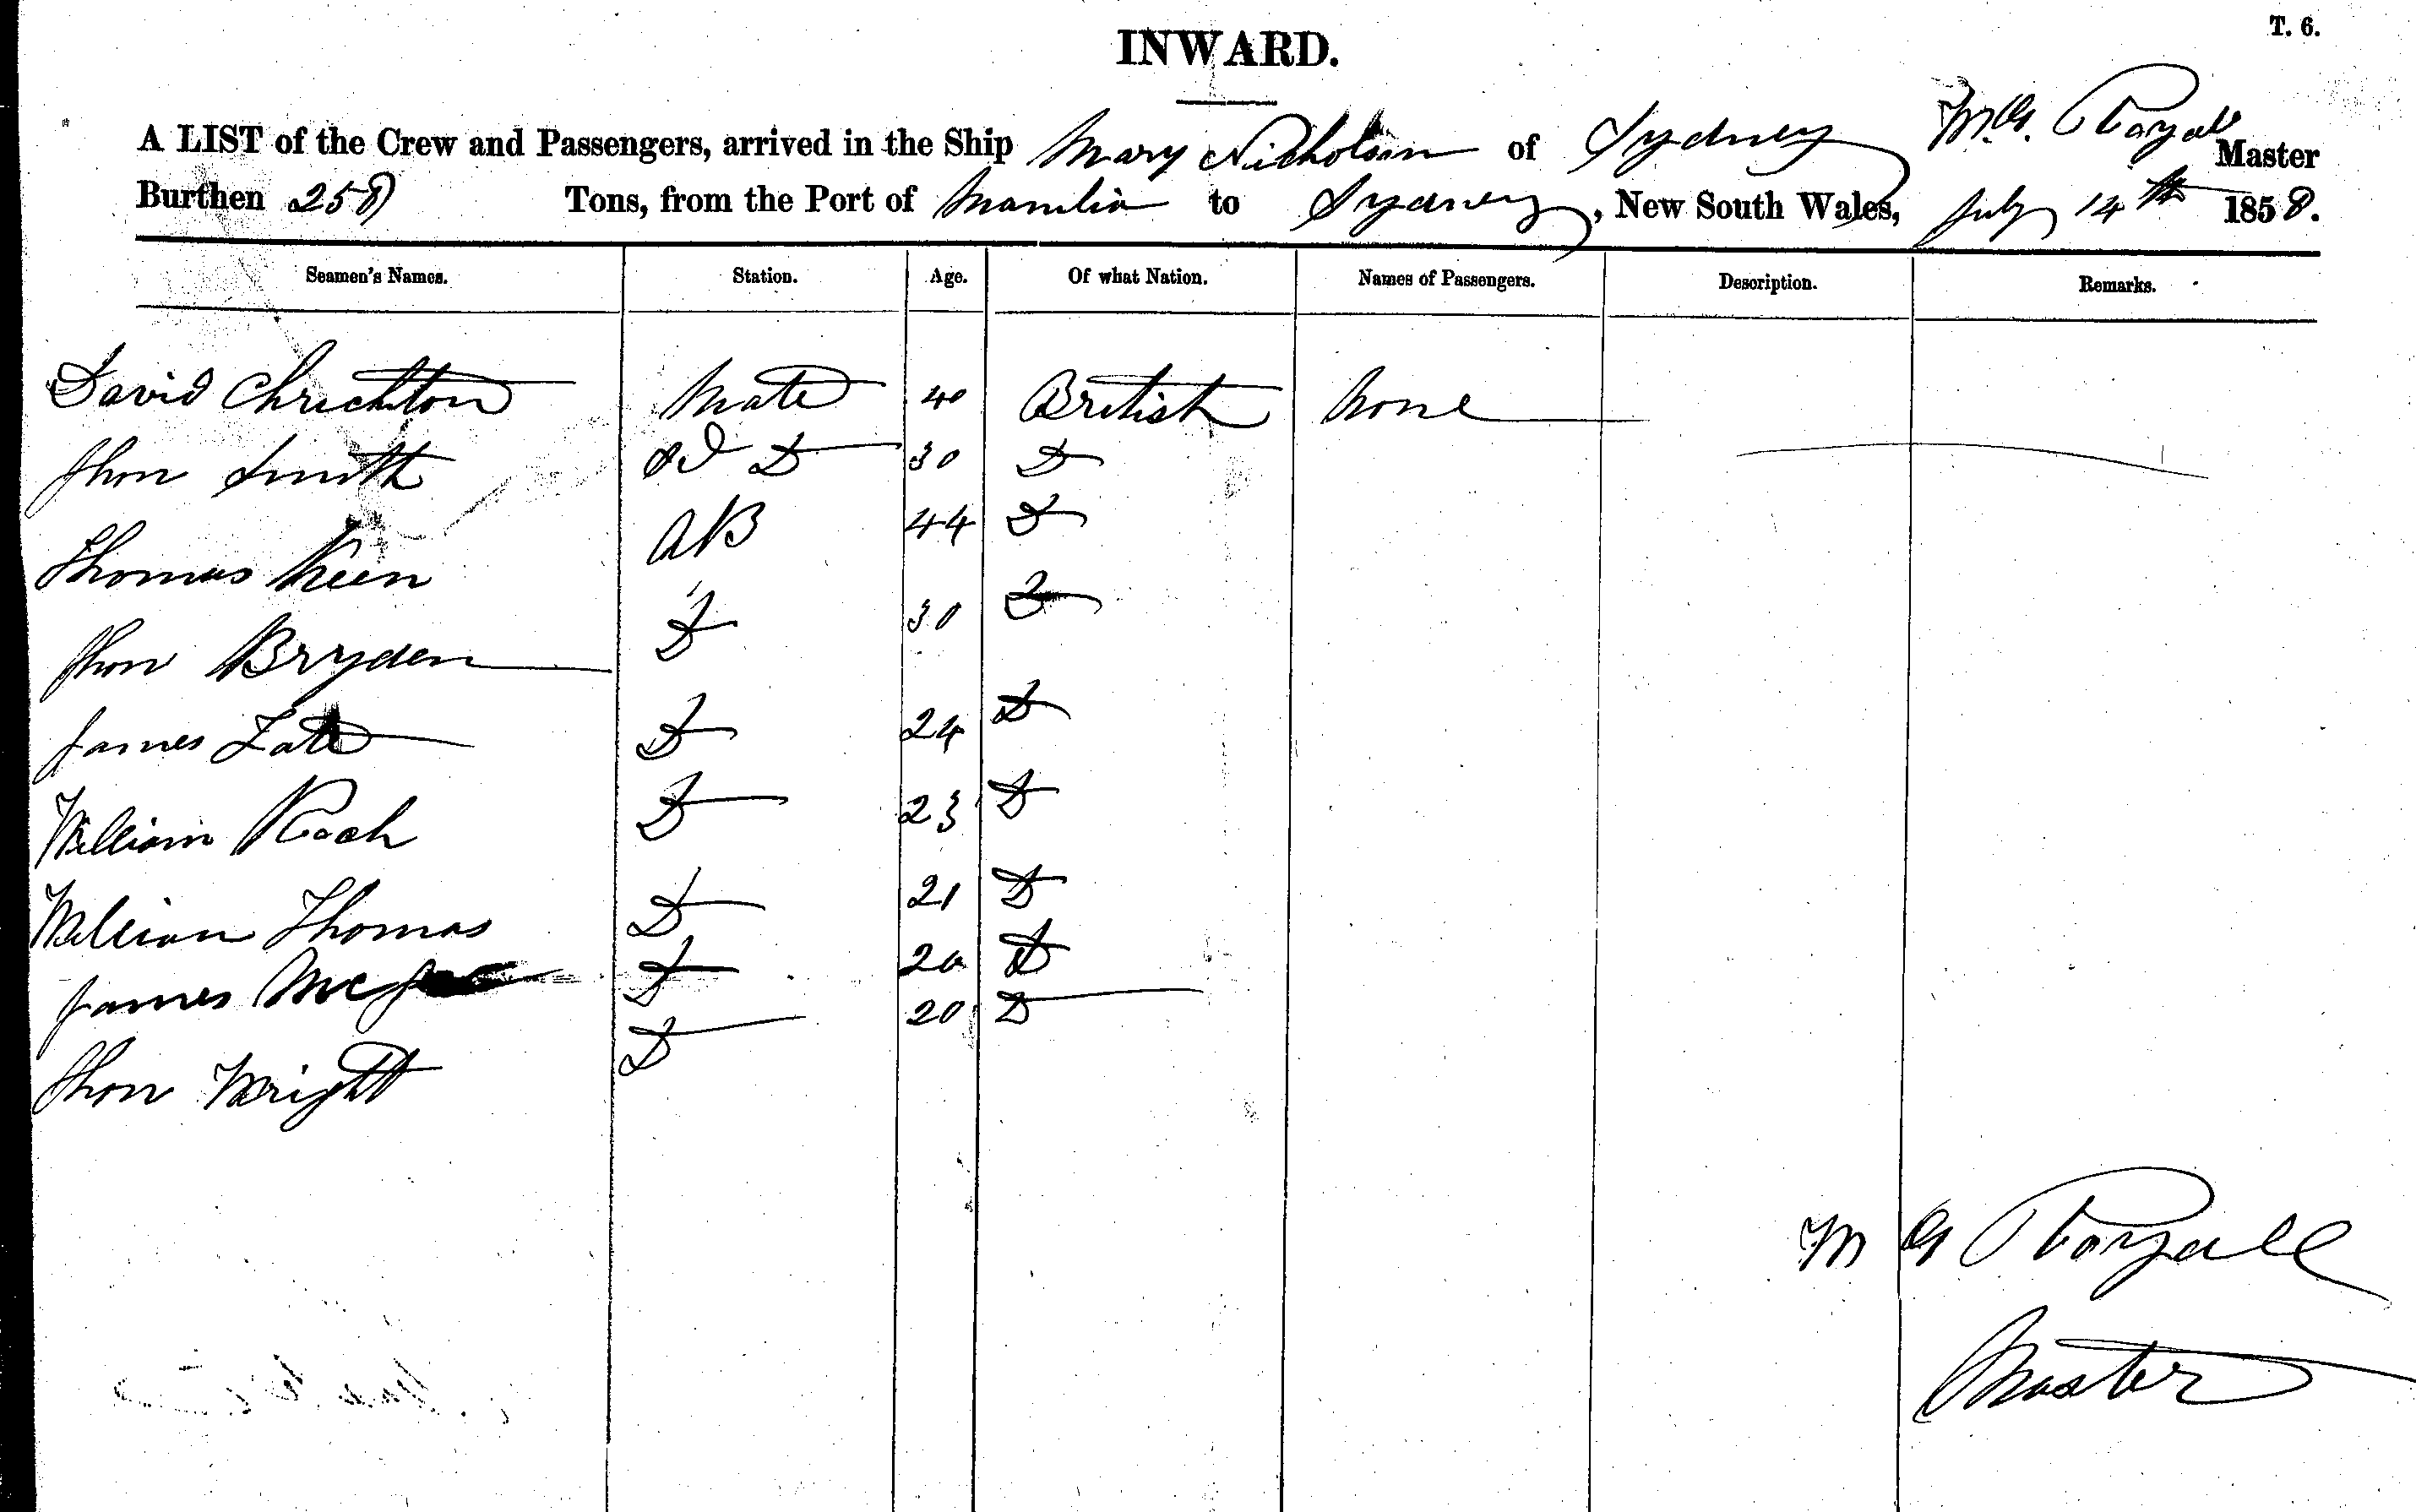 T. 6.
INWARD.
A LIST of the Crew and Passengers, arrived in the Ship Mary Nicholson of Sydney M. G. Royall Master
Burthen 258 Tons, from the Port of Manilia to Sydney, New South Wales, July 14th 1858.
Seamen's Names. Station. Age. Of what Nation. Names of Passengers. Description. Remarks.
David Chrichton Mate 40 British None
Jhon Smith 2d D 30 D
Thomas Keen AB 44 D
Jhon Bryden D 30 D
James Tate D 24 D
William Roch D 23 D
William Thomas D 21 D
James D 20 D
Jhon Wright D 20 D
M G Royall
Master